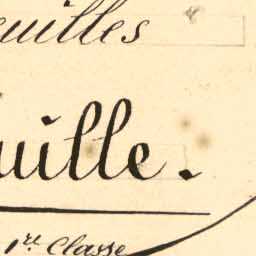 euilles
uille.
1re Classe